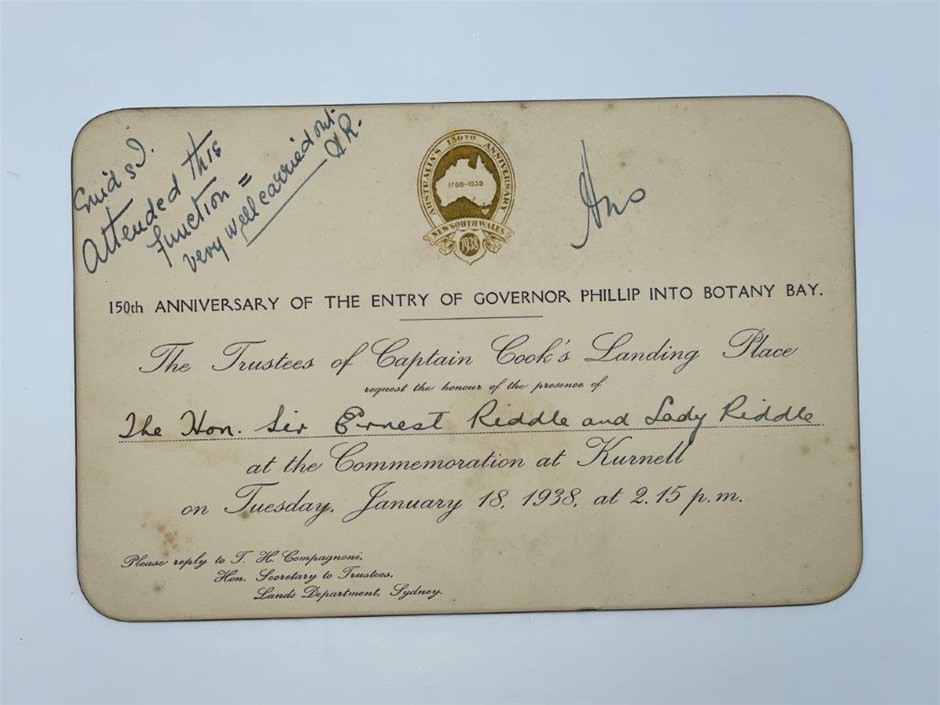 Enid & I.
Attended this
function =
very well carried out.
AUSTRALIA'S 150TH ANNIVERSARY
1788-1938
NEW SOUTH WALES
1938
150th ANNIVERSARY OF THE ENTRY OF GOVERNOR PHILLIP INTO BOTANY BAY.
The Trustees of Captain Cook's Landing Place
request the honour of the presence of
The Hon. Sir Ernest Riddle and Lady Riddle
at the Commemoration at Kurnell
on Tuesday, January 18, 1938, at 2.15 p.m.
Please reply to T. H. Compagnoni,
Hon. Secretary to Trustees,
Lands Department, Sydney.